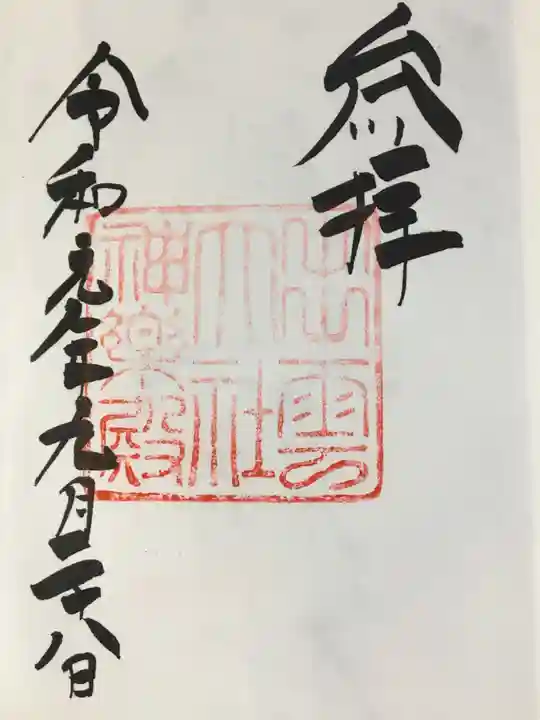 参拝
出雲
大社
神楽殿
令和元年九月二十八日